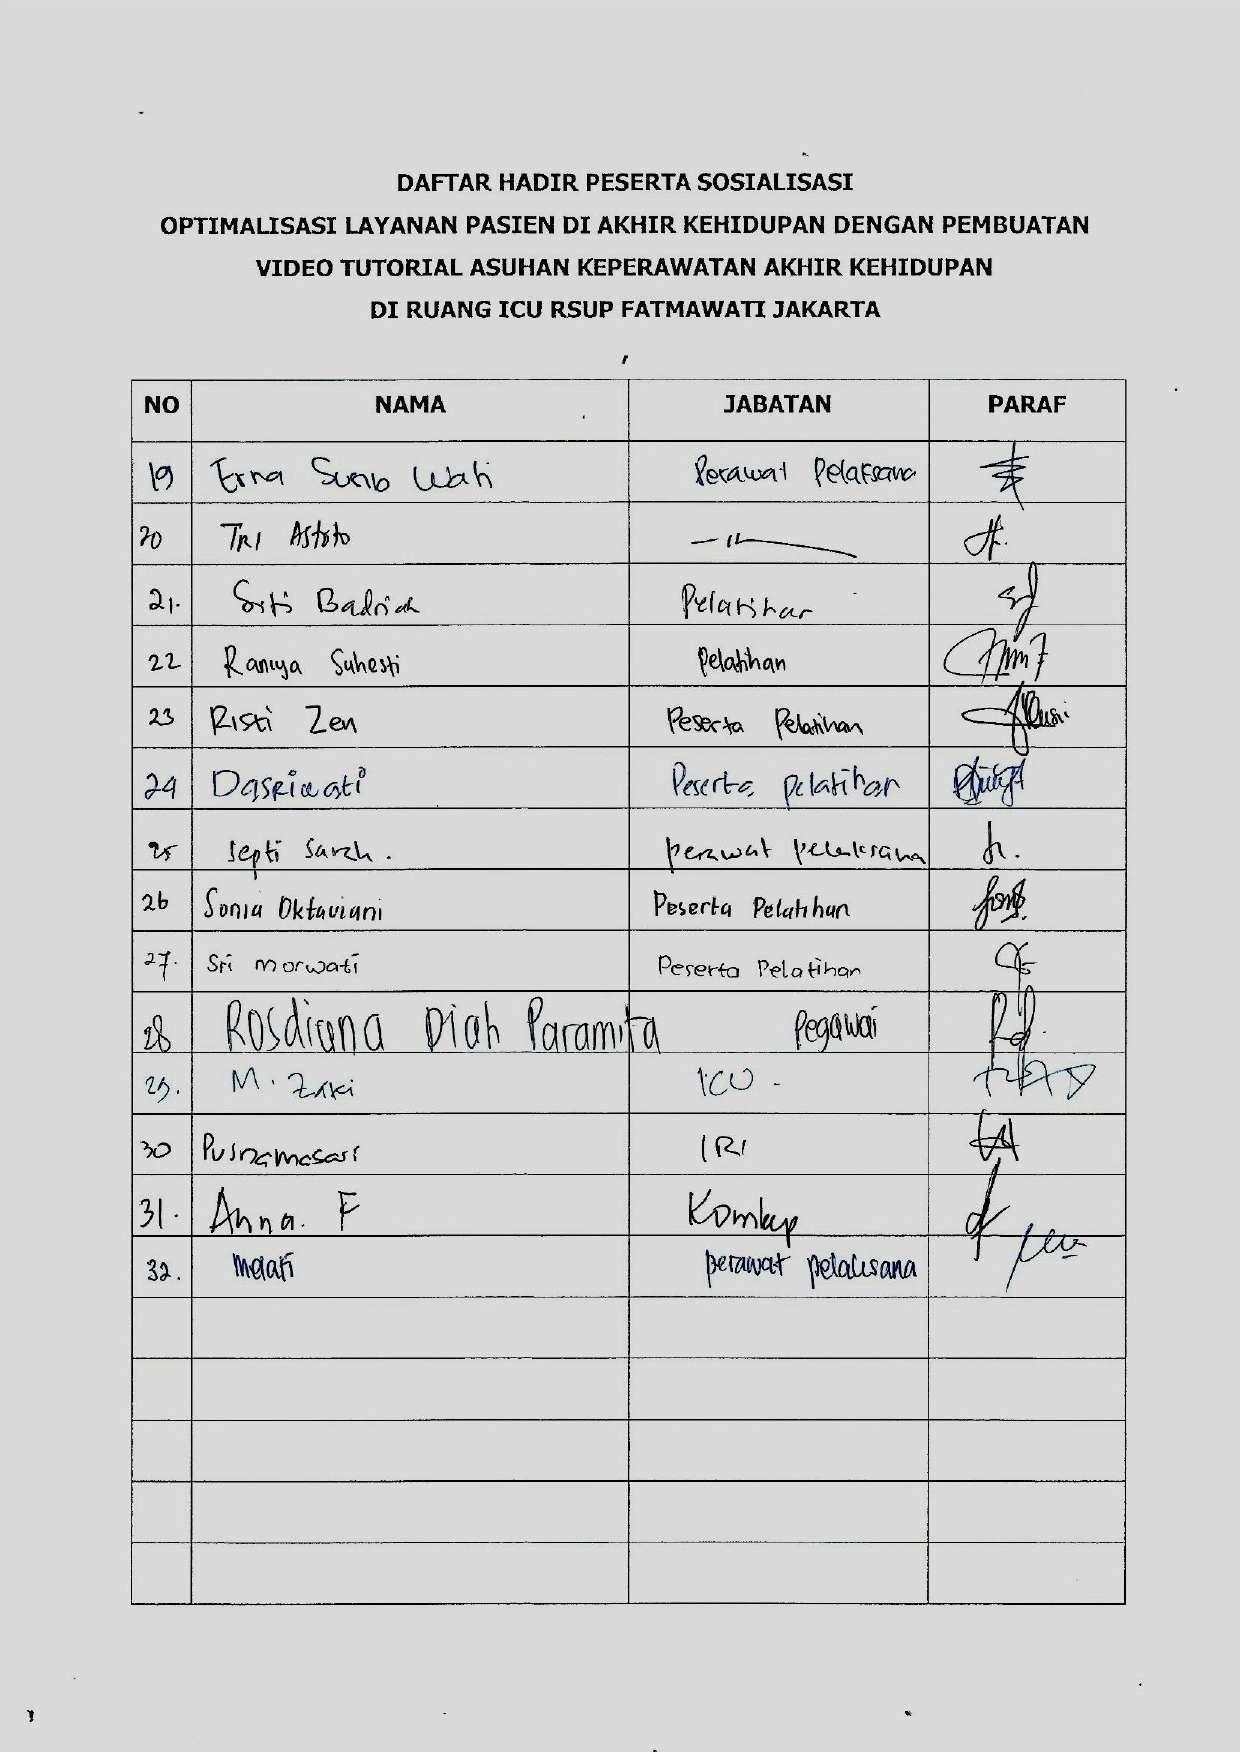 DAFTAR HADIR PESERTA SOSIALISASI
OPTIMALISASI LAYANAN PASIEN DI AKHIR KEHIDUPAN DENGAN PEMBUATAN
VIDEO TUTORIAL ASUHAN KEPERAWATAN AKHIR KEHIDUPAN
DI RUANG ICU RSUP FATMAWATI JAKARTA
NO NAMA JABATAN PARAF
19 Erna Wati Perawat Pelaksana
20 TRI
21. Siti Badriah Pelatihan
22 Suhesti Pelatihan
23 Risti Zen Peserta Pelatihan
24 Dasriwati Peserta pelatihan
25 Septi Sarah. perawat pelaksana
26 Sonia Oktaviani Peserta Pelatihan
27. Sri Morwati Peserta Pelatihan
28 Rosdiana Diah Paramita Pegawai
29. M. Zaki ICU -
30 Purnamasari IRI
31. Anna. F
32. Melati perawat pelaksana